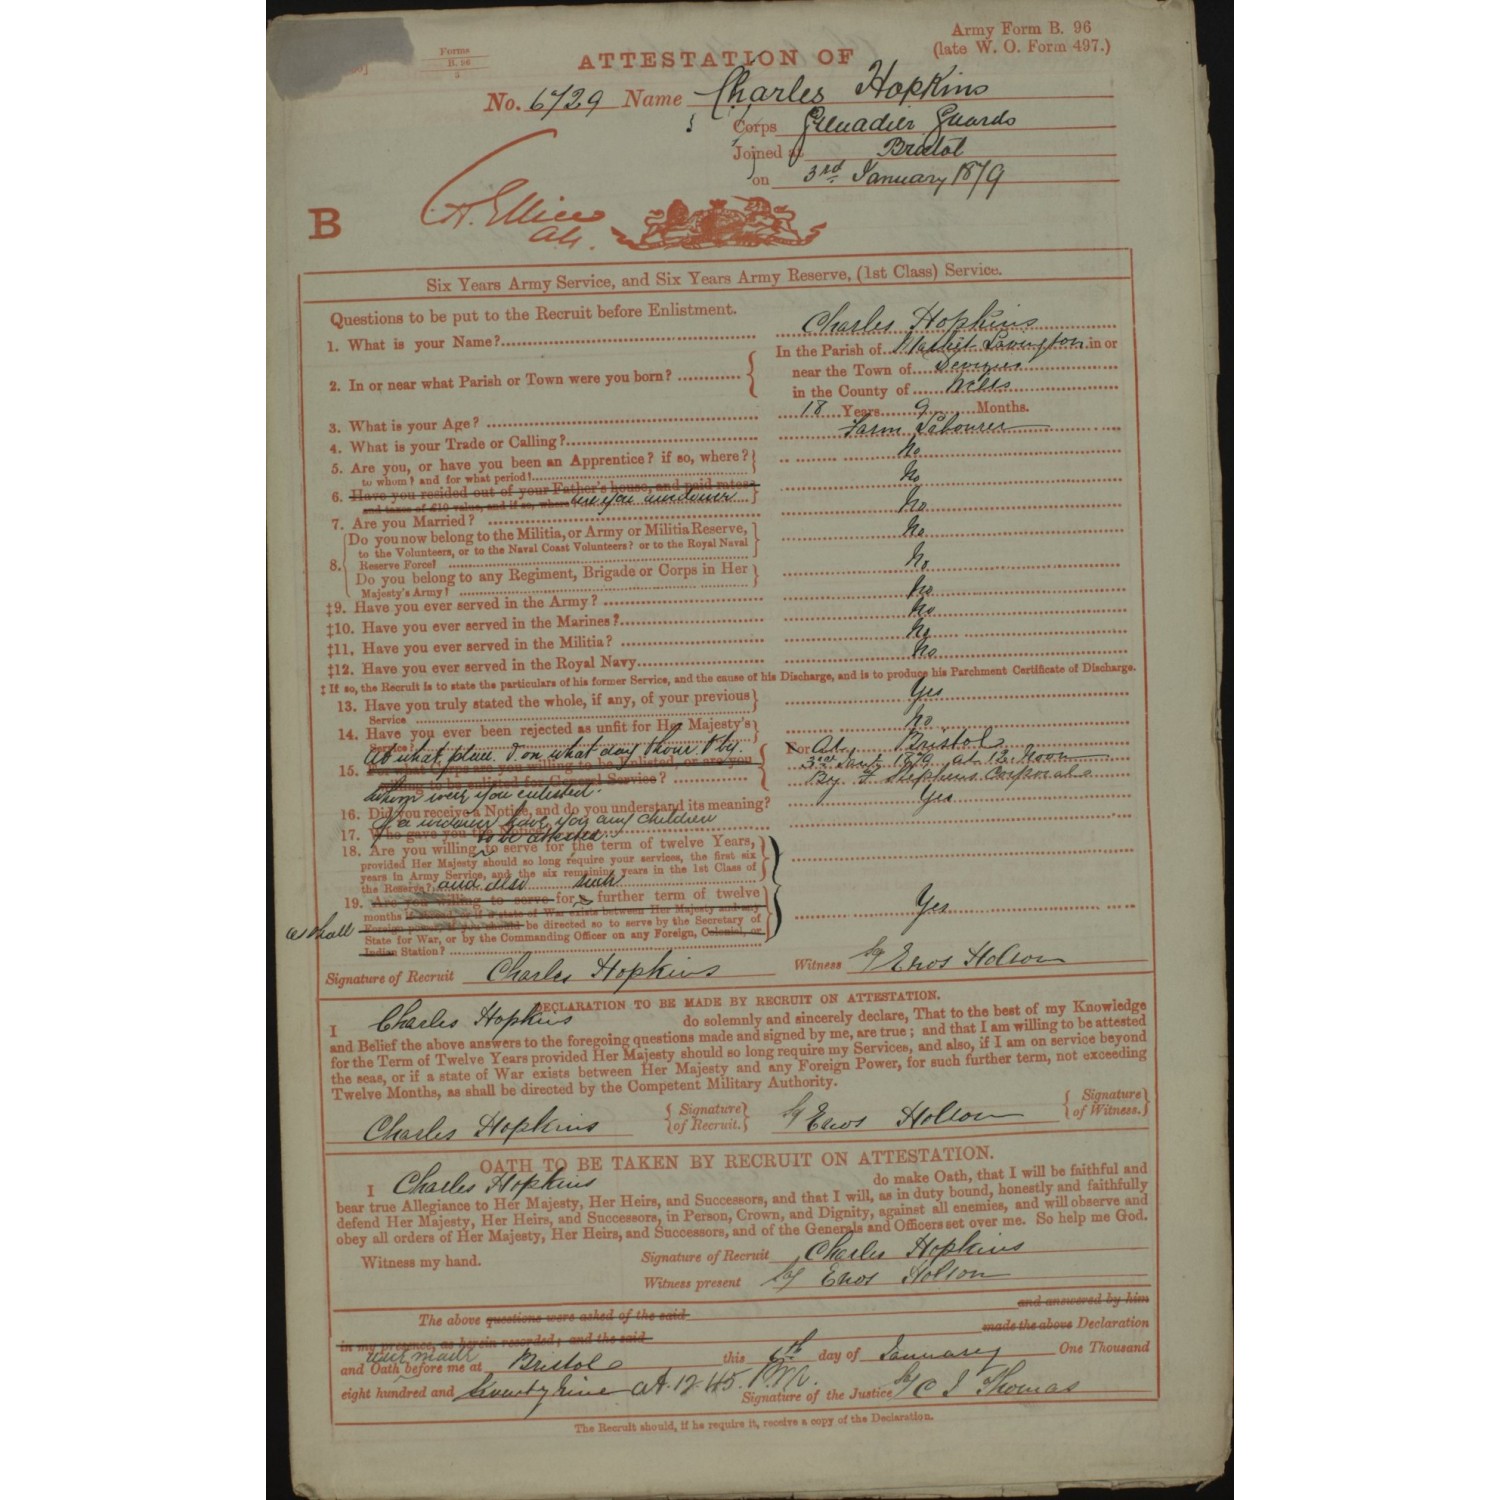 Army Form B. 96
(late W. O. Form 497.)
Forms
B. 96
ATTESTATION OF
No. 6729 Name Charles Hopkins
Corps Grenadier Guards
Joined at Bristol
on 3rd January 1879
B
Six Years Army Service, and Six Years Army Reserve, (1st Class) Service.
Questions to be put to the Recruit before Enlistment.
1. What is your Name? Charles Hopkins
2. In or near what Parish or Town were you born? In the Parish of Market Lavington in or
near the Town of Devizes
in the County of Wilts
3. What is your Age? 18 Years 9 Months.
4. What is your Trade or Calling? Farm Labourer
5. Are you, or have you been an Apprentice? if so, where? No
to whom? and for what period?
6. Have you resided out of your Father's house, and paid rates No
and taxes of £10 value, and if so, where Are you a widower
7. Are you Married? No
8. Do you now belong to the Militia, or Army or Militia Reserve, No
to the Volunteers, or to the Naval Coast Volunteers? or to the Royal Naval
Reserve Force?
Do you belong to any Regiment, Brigade or Corps in Her No
Majesty's Army?
‡9. Have you ever served in the Army? No
‡10. Have you ever served in the Marines? No
‡11. Have you ever served in the Militia? No
‡12. Have you ever served in the Royal Navy No
‡ If so, the Recruit is to state the particulars of his former Service, and the cause of his Discharge, and is to produce his Parchment Certificate of Discharge.
13. Have you truly stated the whole, if any, of your previous Yes
Service
14. Have you ever been rejected as unfit for Her Majesty's No
Service?
At what place & on what day & hour & by For At Bristol
15. For what Corps are you willing to be Enlisted, or are you 3rd Jany 1879 at 12 Noon
willing to be enlisted for General Service? By F Stephens Corporal
whom were you enlisted.
16. Did you receive a Notice, and do you understand its meaning? Yes
If a widower have you any children
17. Who gave you the Notice
to be attested
18. Are you willing to serve for the term of twelve Years,
provided Her Majesty should so long require your services, the first six
years in Army Service, and the six remaining years in the 1st Class of
the Reserve? and also such
19. Are you willing to serve for a further term of twelve Yes
months is abroad, or if a state of War exists between Her Majesty and any
as shall Foreign power, if you should be directed so to serve by the Secretary of
State for War, or by the Commanding Officer on any Foreign, Colonial, or
Indian Station?
Signature of Recruit Charles Hopkins Witness Enos Holson
DECLARATION TO BE MADE BY RECRUIT ON ATTESTATION.
I Charles Hopkins do solemnly and sincerely declare, That to the best of my Knowledge
and Belief the above answers to the foregoing questions made and signed by me, are true; and that I am willing to be attested
for the Term of Twelve Years provided Her Majesty should so long require my Services, and also, if I am on service beyond
the seas, or if a state of War exists between Her Majesty and any Foreign Power, for such further term, not exceeding
Twelve Months, as shall be directed by the Competent Military Authority.
Charles Hopkins Signature of Recruit. Enos Holson Signature of Witness.
OATH TO BE TAKEN BY RECRUIT ON ATTESTATION.
I Charles Hopkins do make Oath, that I will be faithful and
bear true Allegiance to Her Majesty, Her Heirs, and Successors, and that I will, as in duty bound, honestly and faithfully
defend Her Majesty, Her Heirs, and Successors, in Person, Crown, and Dignity, against all enemies, and will observe and
obey all orders of Her Majesty, Her Heirs, and Successors, and of the Generals and Officers set over me. So help me God.
Witness my hand. Signature of Recruit Charles Hopkins
Witness present Enos Holson
The above questions were asked of the said and answered by him
in my presence, as herein recorded; and the said made the above Declaration
were made
and Oath before me at Bristol this 6th day of January One Thousand
eight hundred and Seventy Nine at 12 45 P.M. Signature of the Justice C J Thomas
The Recruit should, if he require it, receive a copy of the Declaration.